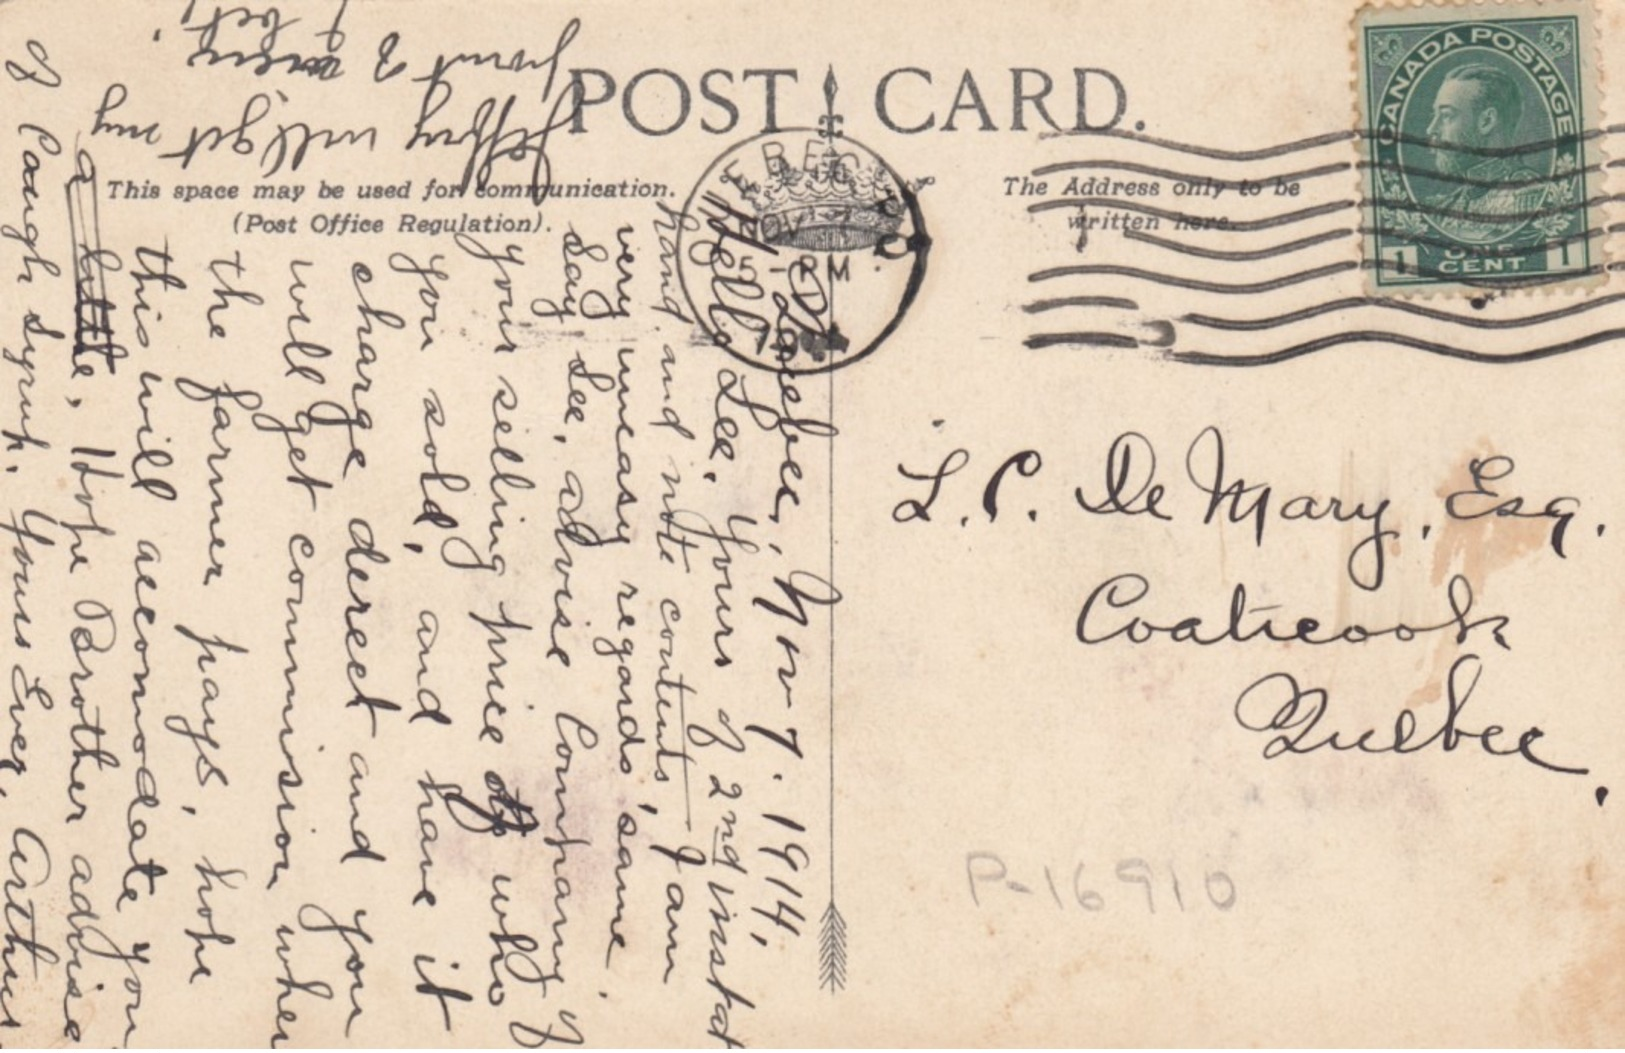 POST CARD.
CANADA POSTAGE
1 ONE CENT 1
This space may be used for communication.
(Post Office Regulation).
The Address only to be
written here.
QUEBEC
NOV 7
5 - PM
L.P. De Mary, Esq.
Coaticook
Quebec.
P-16910
Quebec, Nov 7. 1914,
Hello Lee, Yours of 2nd instat
hand and note contents, I am
very uneasy regards same,
Say Lee, advise Company of
your selling price of who
you sold, and have it
charge derect and you
will get commission when
the farmer pays, hope
this will accomodate you
a little, Hope Brother advise
of Cough Syrup. Yours Ever, Arthur
Jeffry will get my